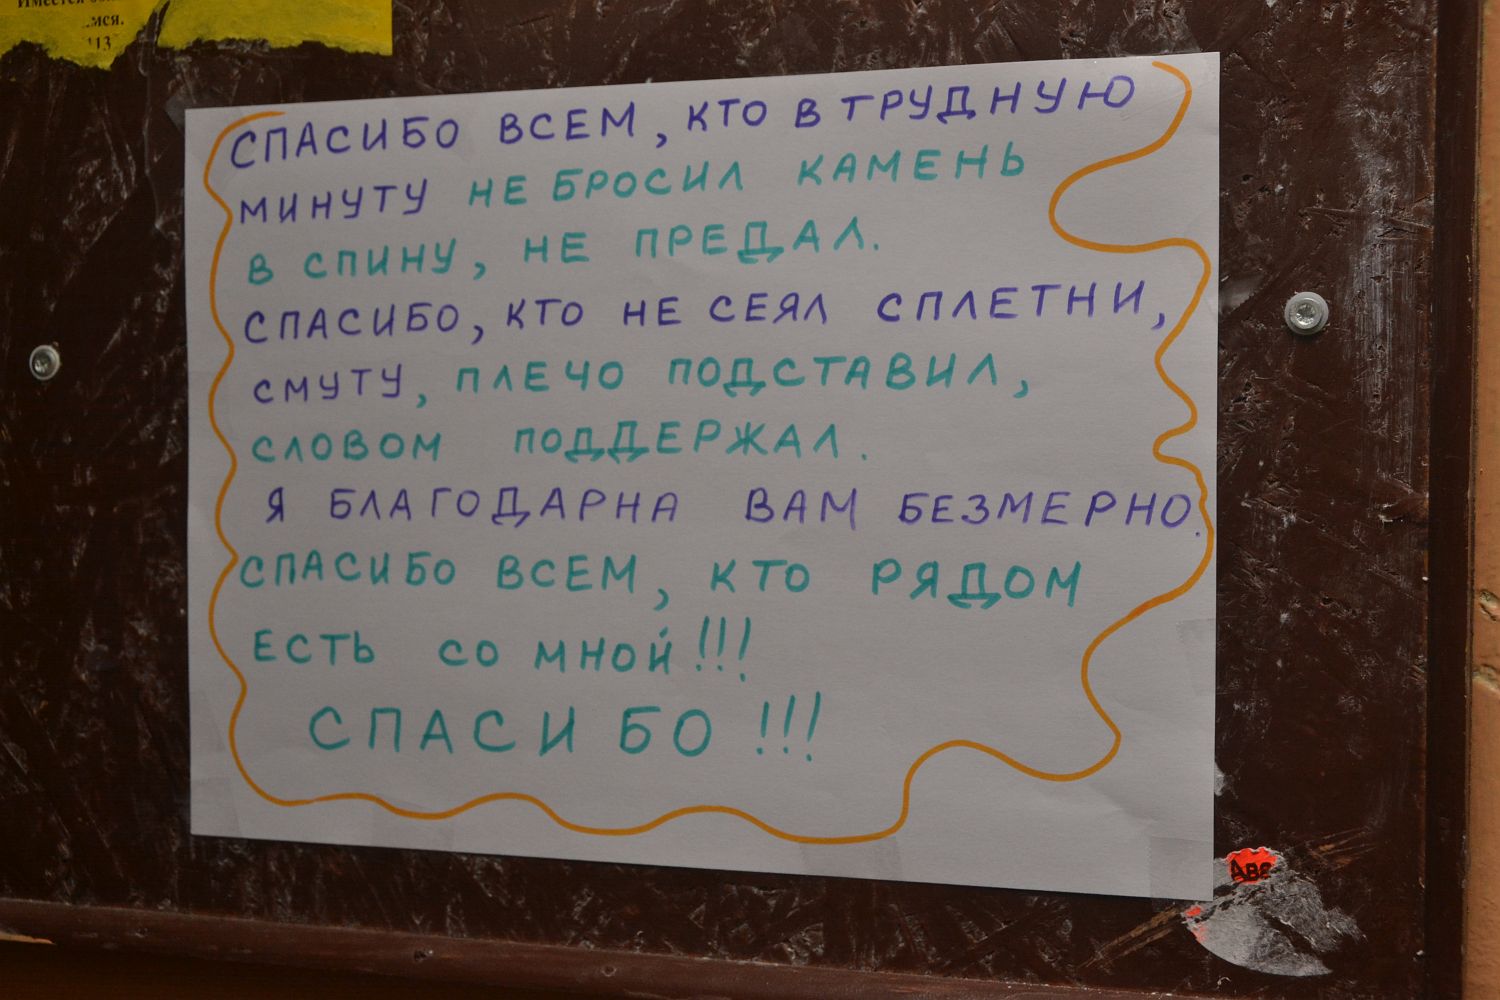 мся.
СПАСИБО ВСЕМ, КТО В ТРУДНУЮ
МИНУТУ НЕ БРОСИЛ КАМЕНЬ
В СПИНУ, НЕ ПРЕДАЛ.
СПАСИБО, КТО НЕ СЕЯЛ СПЛЕТНИ,
СМУТУ, ПЛЕЧО ПОДСТАВИЛ,
СЛОВОМ ПОДДЕРЖАЛ.
Я БЛАГОДАРНА ВАМ БЕЗМЕРНО.
СПАСИБО ВСЕМ, КТО РЯДОМ
ЕСТЬ СО МНОЙ!!!
СПАСИБО!!!